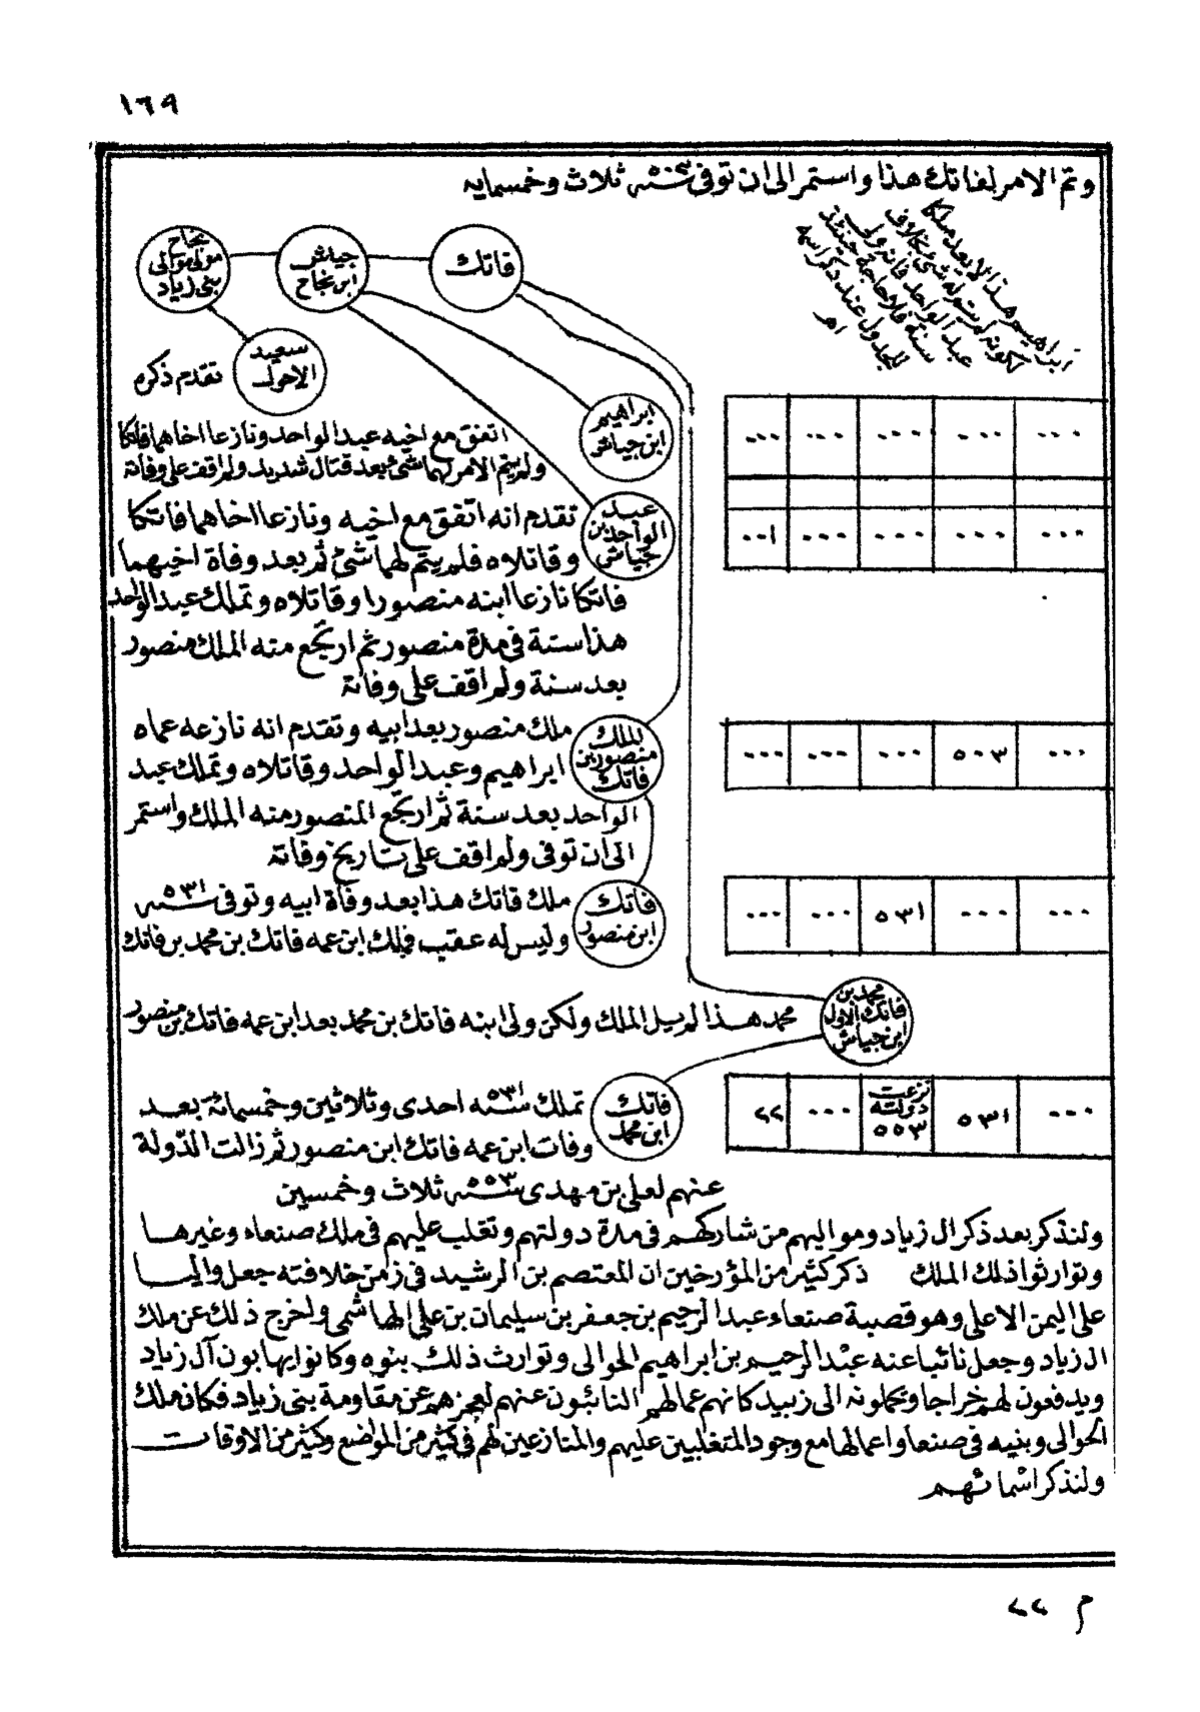 ١٦٩
وتم الامر لفاتك هذا واستمر الى ان توفى سنة ٥٠٣ ثلاث وخمسمايه
ابراهيم هذا لا يعد ملكا
لكونه لم يتم له شئ بخلاف
عبد الواحد فانه ولى
سنة فلا حاجة حينئذ
للجدول عند ذكر اسمه
اهـ
فاتك
جياش
ابن نجاح
نجاح
مولى موالى
بنى زياد
سعيد
الاحول
تقدم ذكره
ابراهيم
ابن جياش
اتفق مع اخيه عبد الواحد ونازعا اخاهما فاتكا
ولم يتم الامر لهما شئ بعد قتال شديد ولم اقف على وفاته
٠٠٠ ٠٠٠ ٠٠٠ ٠٠٠ ٠٠٠
عبد
الواحد بن
جياش
تقدم انه اتفق مع اخيه ونازعا اخاهما فاتكا
وقاتلاه فلم يتم لهما شئ ثم بعد وفاة اخيهما
فاتكا نازعا ابنه منصورا وقاتلاه وتملك عبد الواحد
هذا سنة فى مدة منصور ثم ارتجع منه الملك منصور
بعد سنة ولم اقف على وفاته
٠٠٠ ٠٠٠ ٠٠٠ ٠٠٠ ٠٠١
الملك
منصور بن
فاتك
ملك منصور بعد ابيه وتقدم انه نازعه عماه
ابراهيم وعبد الواحد وقاتلاه وتملك عبد
الواحد بعد سنة ثم ارتجع المنصور منه الملك واستمر
الى ان توفى ولم اقف على تاريخ وفاته
٠٠٠ ٥٠٣ ٠٠٠ ٠٠٠ ٠٠٠
فاتك
ابن منصور
ملك فاتك هذا بعد وفاة ابيه وتوفى سنة ٥٣١
وليس له عقب فملك ابن عمه فاتك بن محمد بن فاتك
٠٠٠ ٠٠٠ ٥٣١ ٠٠٠ ٠٠٠
محمد بن
فاتك الاول
ابن جياش
محمد هذا لم يل الملك ولكن ولى ابنه فاتك بن محمد بعد ابن عمه فاتك بن منصور
فاتك
ابن محمد
تملك سنة ٥٣١ احدى وثلاثين وخمسمائة بعد
وفات ابن عمه فاتك ابن منصور ثم زالت الدّولة
عنهم لعلى بن مهدى سنة ٥٥٣ ثلاث وخمسين
٠٠٠ ٥٣١ نزعت دولته ٥٥٣ ٠٠٠ ٢٢
ولنذكر بعد ذكر ال زياد ومواليهم من شاركهم فى مدة دولتهم وتغلب عليهم فى ملك صنعاء وغيرها
وتوارثوا ذلك الملك ذكر كثير من المؤرخين ان المعتصم بن الرشيد فى زمن خلافته جعل واليا
على اليمن الاعلى وهو قصبة صنعاء عبد الرحيم بن جعفر بن سليمان بن على الهاشمى واخرج ذلك عن ملك
ال زياد وجعل نائبا عنه عبد الرحيم بن ابراهيم الحوالى وتوارث ذلك بنوه وكانوا يهابون آل زياد
ويدفعون لهم خراجا ويحملونه الى زبيد كانهم عمالهم النائبون عنهم لعجزهم عن مقاومة بنى زياد فكان ملك
الحوالى وبنيه فى صنعا واعمالها مع وجود المتغلبين عليهم والمنازعين لهم فى كثير من المواضع وكثير من الاوقات
ولنذكر اسمائهم
م ٢٢